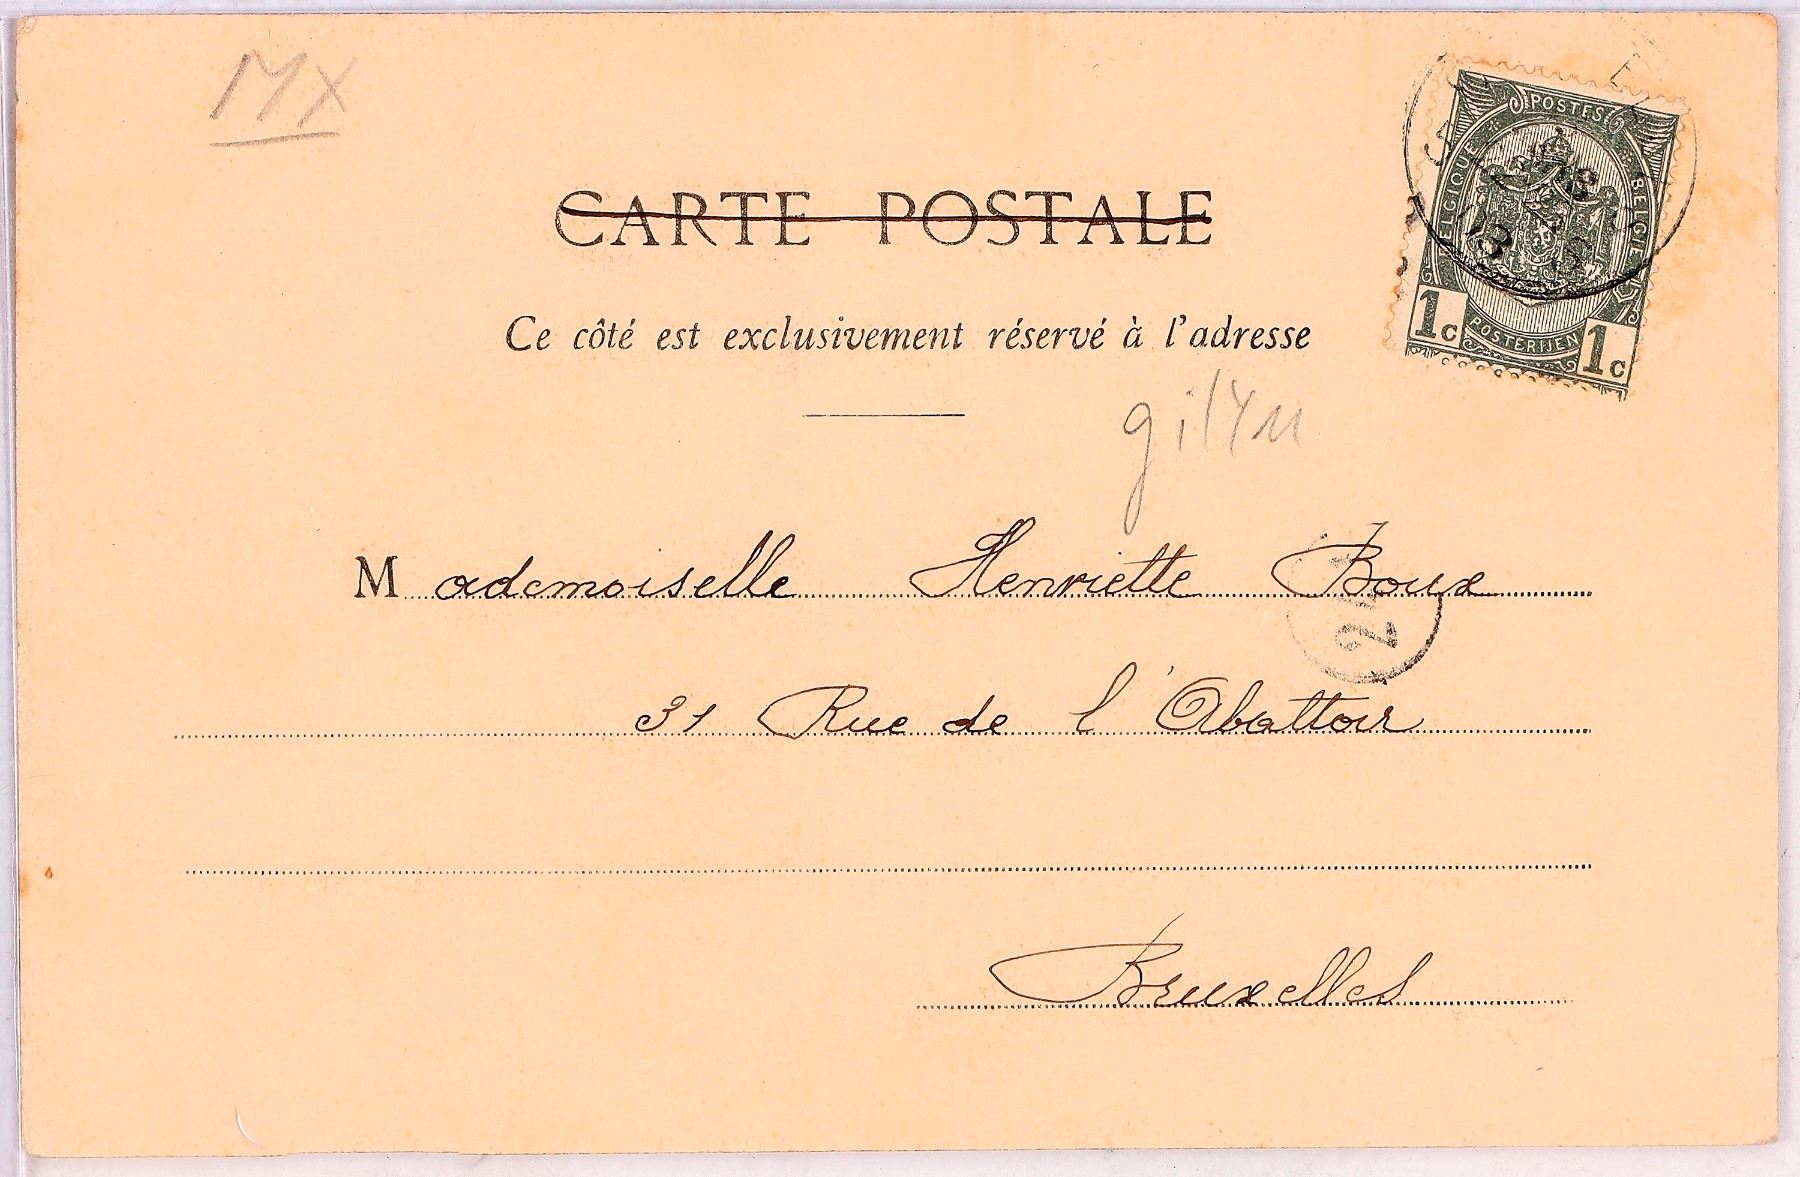 MX
CARTE POSTALE
Ce côté est exclusivement réservé à l'adresse
POSTES
BELGIQUE
BELGIE
POSTERIJEN
1c 1c
Mademoiselle Henriette Boux
2
31 Rue de l'Abattoir
Bruxelles